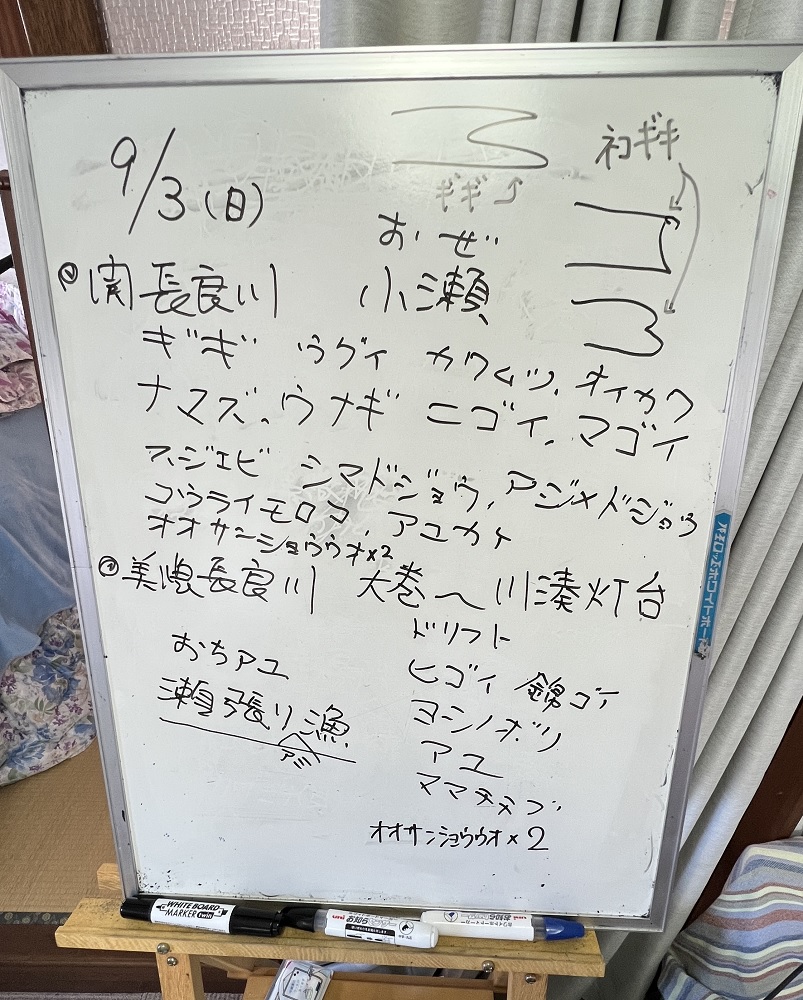 9/3(日)
ネコギギ
ギギ
おぜ
関 長良川 小瀬
ギギ ウグイ カワムツ、オイカワ
ナマズ、ウナギ ニゴイ、マゴイ
スジエビ シマドジョウ、アジメドジョウ
コウライモロコ、アユカケ
オオサンショウウオ×2
美濃長良川 大巻〜川湊灯台
ドリフト
おちアユ
ヒゴイ 錦ゴイ
瀬張り漁
アミ
ヨシノボリ
アユ
ヌマチチブ
オオサンショウウオ×2
WHITEBOARD
MARKER twin
uni
お知らせ
uni